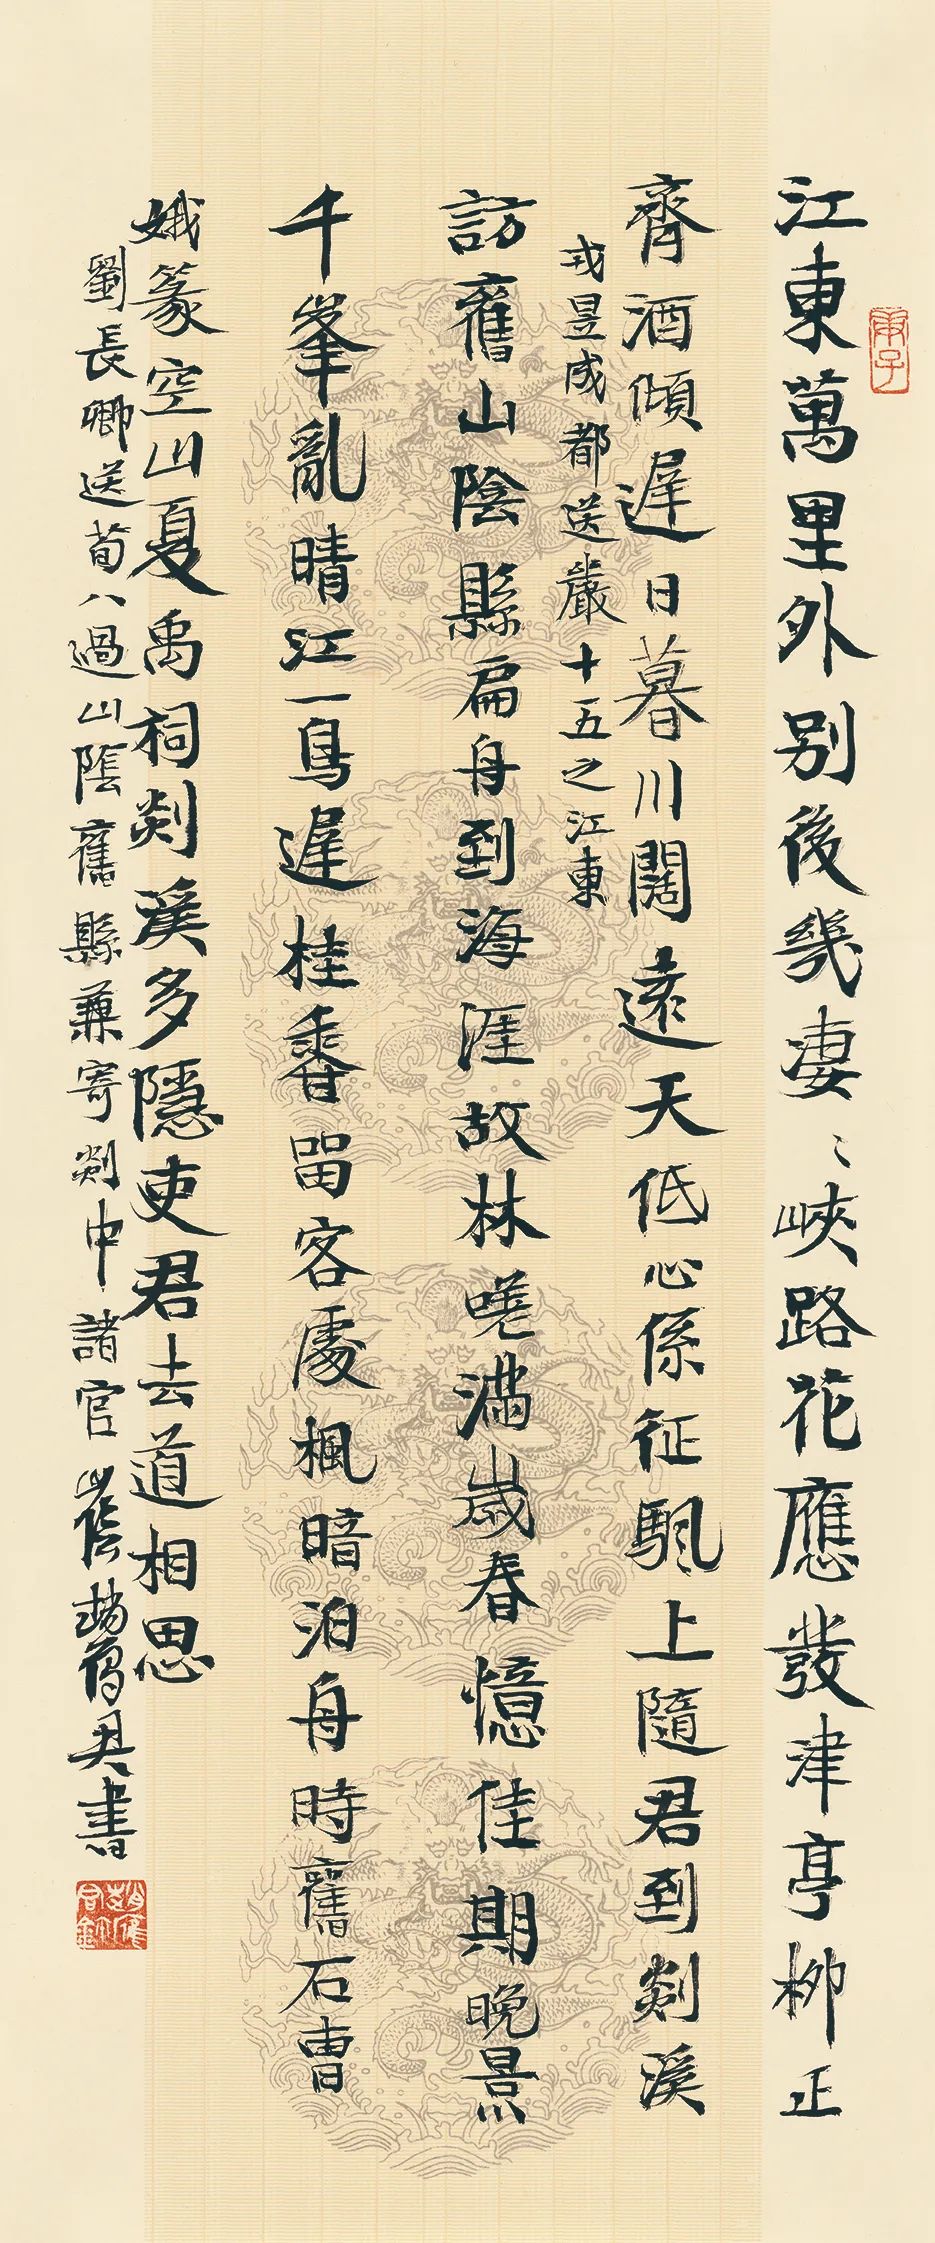 江東萬里外别後幾凄〻峽路花應發津亭柳正
齊酒傾遲日暮川闊遠天低心係征颿上隨君到剡溪
戎昱成都送嚴十五之江東
訪舊山陰縣扁舟到海涯故林嗟滿歲春憶佳期晚景
千峯亂晴江一鳥遲桂香留客處楓暗泊舟時舊石曹
娥篆空山夏禹祠剡溪多隱吏君去道相思
劉長卿送荀八過山陰舊縣兼寄剡中諸官
書